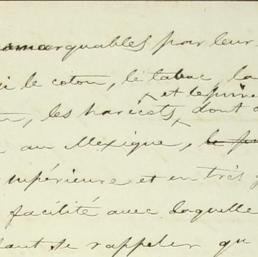 remarquables pour leur
le coton, le tabac, la
et le
les haricots, dont
au Mexique,
supérieure et en très
facilité avec laquelle
faut se rappeler qu